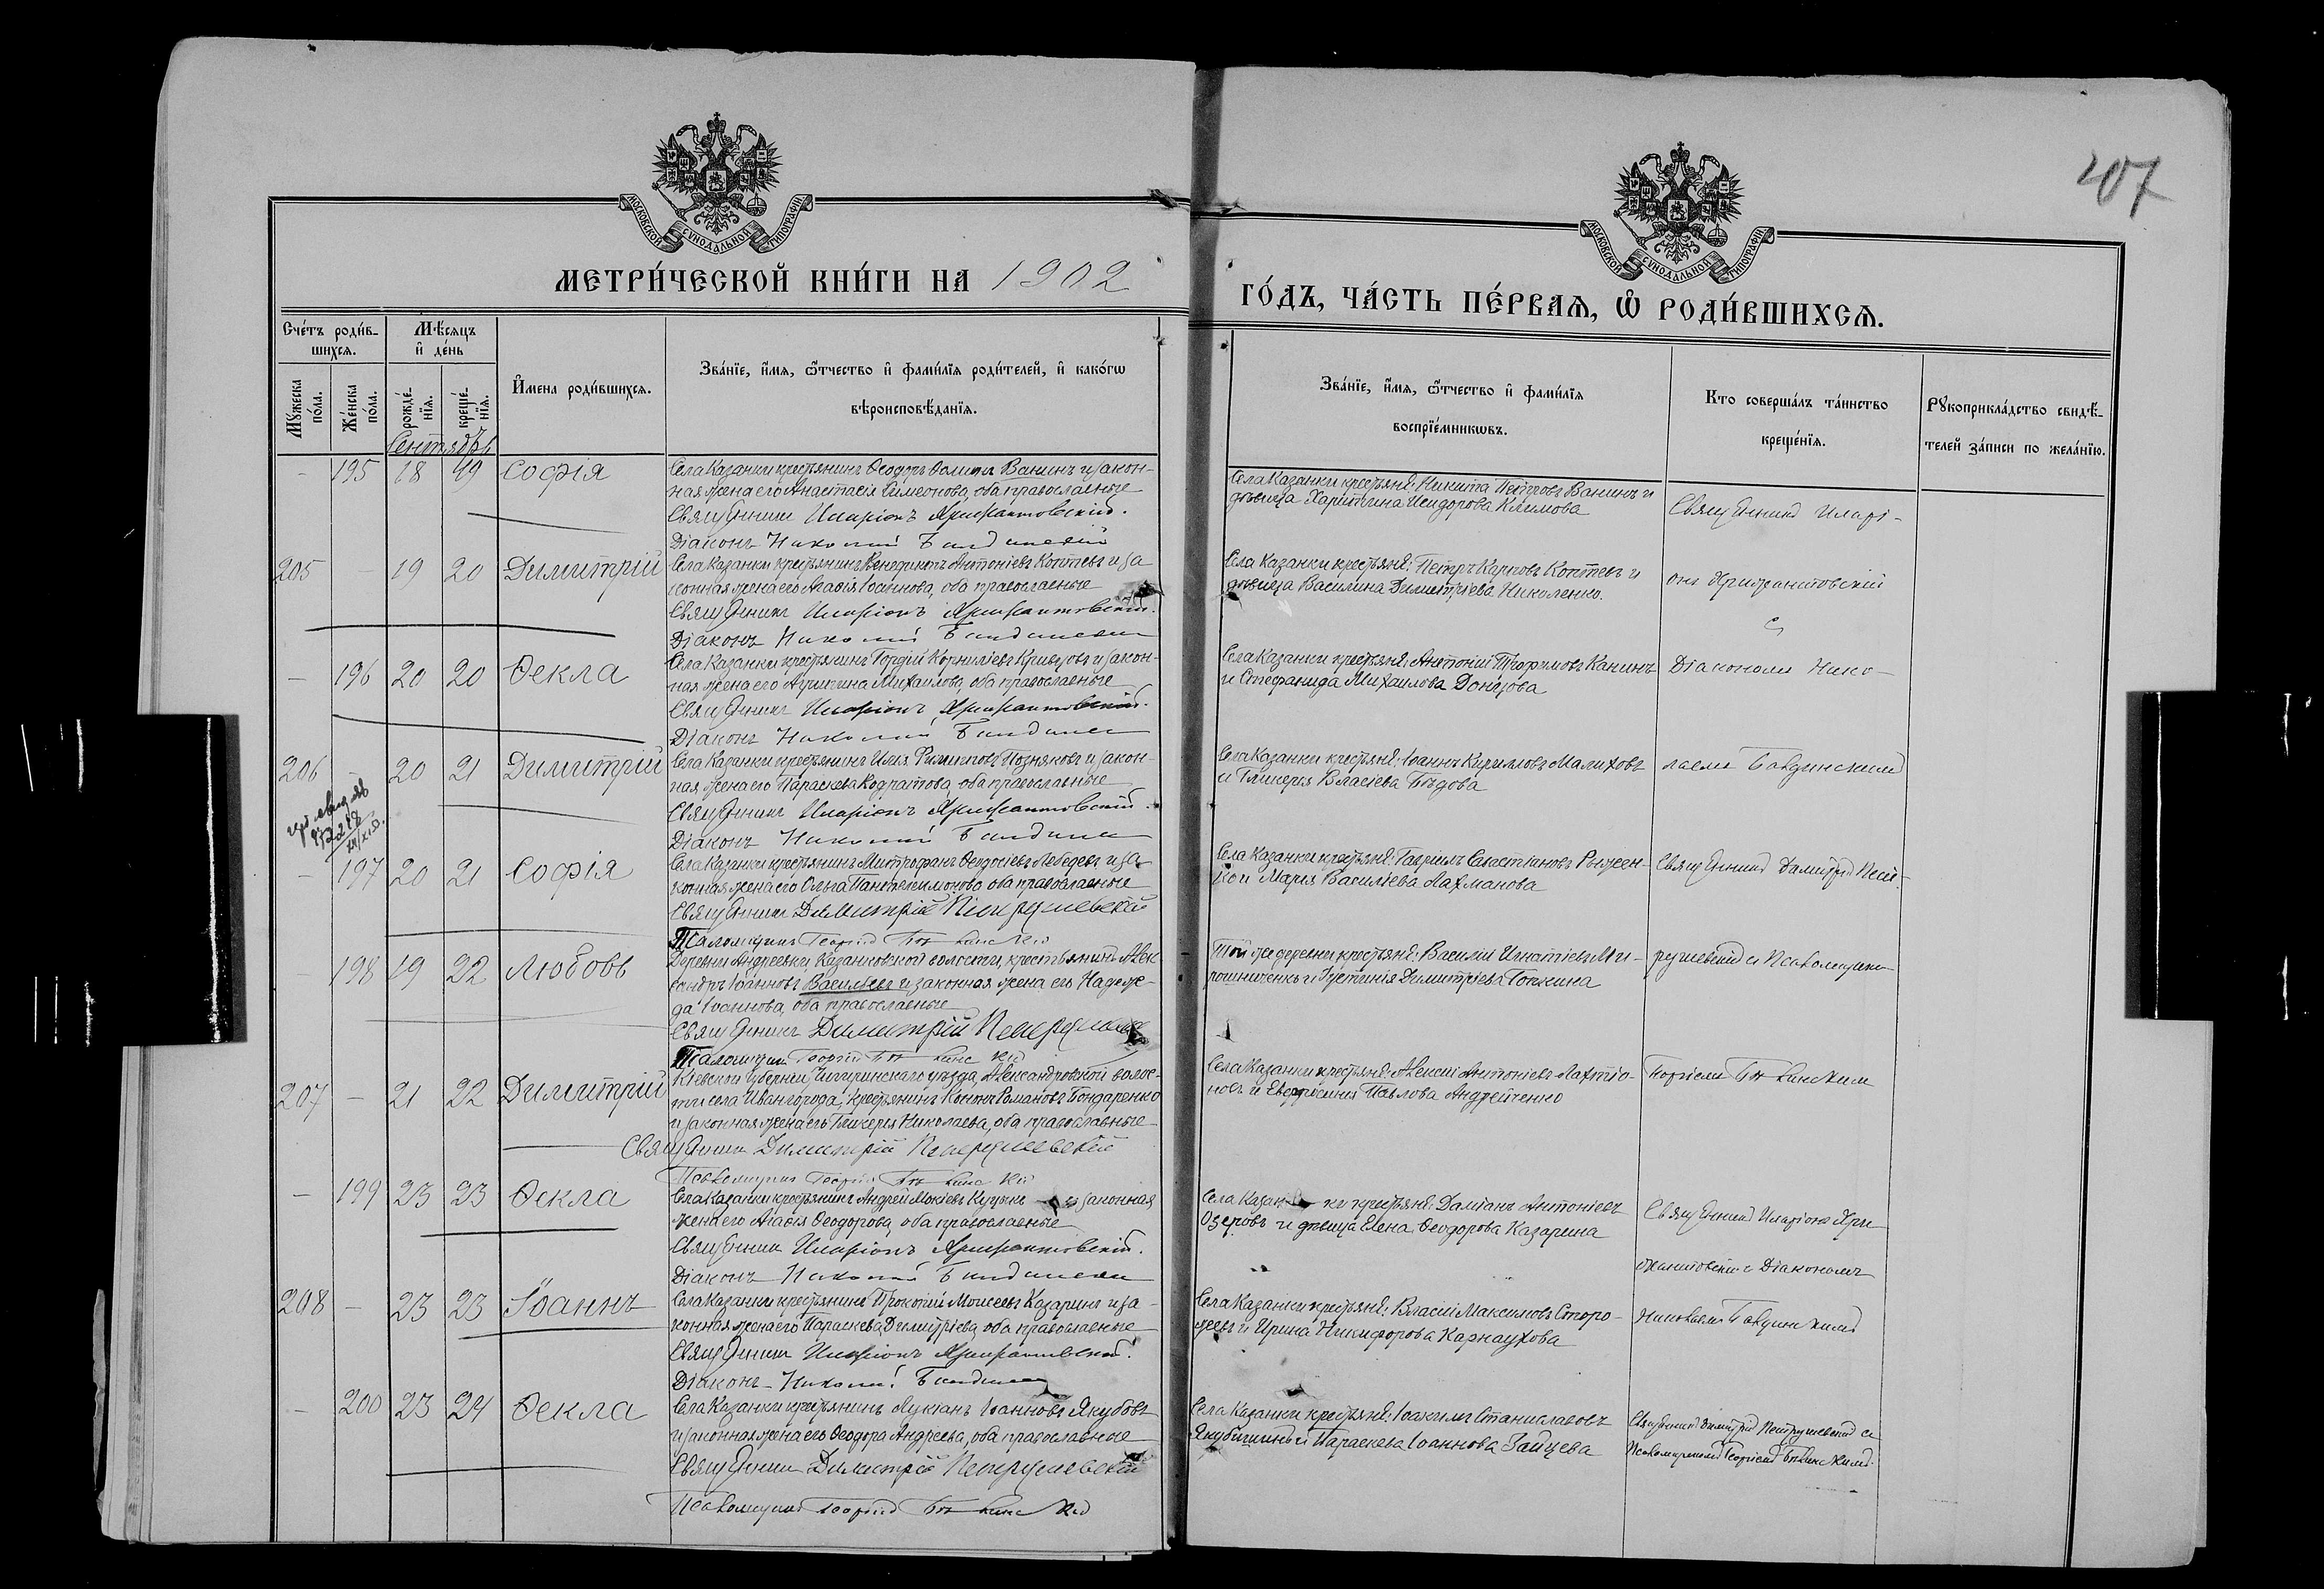 207
МОСКОВСКОЙ СУНОДАЛЬНОЙ ТИПОГРАФІИ
МОСКОВСКОЙ СУНОДАЛЬНОЙ ТИПОГРАФІИ
МЕТРИ́ЧЕСКОЙ КНИ́ГИ НА 1902
ГО́ДЪ, ЧА́СТЬ ПЕ́РВАѦ, Ѡ҆ РОДИ́ВШИХСѦ.
Сче́тъ роди́в-
шихсѧ.
Мѣ́сѧцъ
и҆ де́нь
Мꙋ́жеска
по́ла.
Же́нска
по́ла.
рожде́-
нїѧ.
креще́-
нїѧ.
И҆мена роди́вшихсѧ.
Зва́нїе, и҆́мѧ, ѻ҆́тчество и҆ фами́лїѧ роди́телей, и҆ како́гѡ
вѣроисповѣ́данїѧ.
Зва́нїе, и҆́мѧ, ѻ҆́тчество и҆ фами́лїѧ
воспрїе́мникѡвъ.
Кто соверша́лъ та́инство
креще́нїѧ.
Рꙋкоприкла́дство свидѣ́-
телей за́писи по жела́нїю.
Сентябрь
– 195 18 19 Софія
Села Казанки крестьянинъ Ѳеодоръ Ванинъ и закон-
ная жена его Анастасія Симеонова, оба православные
Священникъ Иларіонъ Хрисанфовскій.
Діаконъ Николай
Села Казанки крестьяне: Никита Петровъ Ванинъ и
дѣвица Харитина Исидорова Климова
Священникъ Иларі-
205 – 19 20 Димитрій
Села Казанки крестьянинъ Венедиктъ Антоніевъ Коптевъ и за
конная жена его Агафія Іоаннова, оба православные
Священникъ Иларіонъ
Діаконъ Николай
Села Казанки крестьяне: Петръ Карповъ Коптевъ и
дѣвица Василина Димитріева Николенко.
онъ
съ
– 196 20 20 Ѳекла
Села Казанки крестьянинъ Гордій Корниліевъ Кривцовъ и закон-
ная жена его Михаилова, оба православные
Священникъ Иларіонъ
Діаконъ Николай
Села Казанки крестьяне: Антоній Трофимовъ Канинъ
и Стефанида Михаилова Донцова
Діакономъ Нико-
206 – 20 21 Димитрій
Села Казанки крестьянинъ Илія Филипповъ Позняковъ и закон-
ная жена его Параскева Кодратова, оба православные
Священникъ Иларіонъ
Діаконъ Николай
Села Казанки крестьяне: Іоаннъ Кирилловъ Малиховъ
и Гликерія Власіева Бѣдова
лаемъ
– 197 20 21 Софія
Села Казанки крестьянинъ Митрофанъ Ѳеодосіевъ Лебедевъ и за-
конная жена его Ольга Пантелеимонова оба православные
Священникъ Димитрій Петрушевскій
Псаломщикъ Георгій
Села Казанки крестьяне: Гавріилъ Савастіановъ Рыжен-
ко и Марія Василіева Лахманова
Священникъ Димитрій Пет-
– 198 19 22 Любовь
Деревни Андреевки, Казанковской волости, крестьянинъ Алек
сандръ Іоанновъ Васильевъ и законная жена его Надеж-
да Іоаннова, оба православные
Священникъ Димитрій Петрушевскій
Псаломщикъ Георгій
Той же деревни крестьяне: Василій Игнатіевъ Ми-
рошниченко и Іустинія Димитріева Гопкина
рушевскій съ Псаломщикомъ
207 – 21 22 Димитрій
Кіевской губерніи, Чигиринскаго уѣзда, Александровской волос-
ти села Ивангорода, крестьянинъ Кононъ Романовъ Бондаренко
и законная жена его Гликерія Николаева, оба православные
Священникъ Димитрій Петрушевскій
Псаломщикъ Георгій
Села Казанки крестьяне: Алексій Антоніевъ Лахтіо-
новъ и Евфросинія Павлова Андрейченко
Георгіемъ
– 199 23 23 Ѳекла
Села Казанки крестьянинъ Андрей Мокіевъ и законная
жена его Агафія Ѳеодорова, оба православные
Священникъ Иларіонъ
Діаконъ Николай
Села Казанки крестьяне: Даміанъ Антоніевъ
Озеровъ и дѣвица Елена Ѳеодорова Казарина
Священникъ Иларіонъ Хри-
Діакономъ
208 – 23 23 Іоаннъ
Села Казанки крестьянинъ Прокопій Моисеевъ Казаринъ и за-
конная жена его Параскева Димитріева, оба православные
Священникъ Иларіонъ
Діаконъ Николай
Села Казанки крестьяне: Власій Максимовъ Сторо-
жевъ и Ирина Никифорова Карнаухова
Николаемъ
– 200 23 24 Ѳекла
Села Казанки крестьянинъ Лукіанъ Іоанновъ Якубовъ
и законная жена его Ѳеодора Андреева, оба православные
Священникъ Димитрій Петрушевскій
Псаломщикъ Георгій
Села Казанки крестьяне: Іоакимъ Станиславовъ
и Параскева Іоаннова Зайцева
Священникъ Димитрій Петрушевскій съ
Псаломщикомъ Георгіемъ